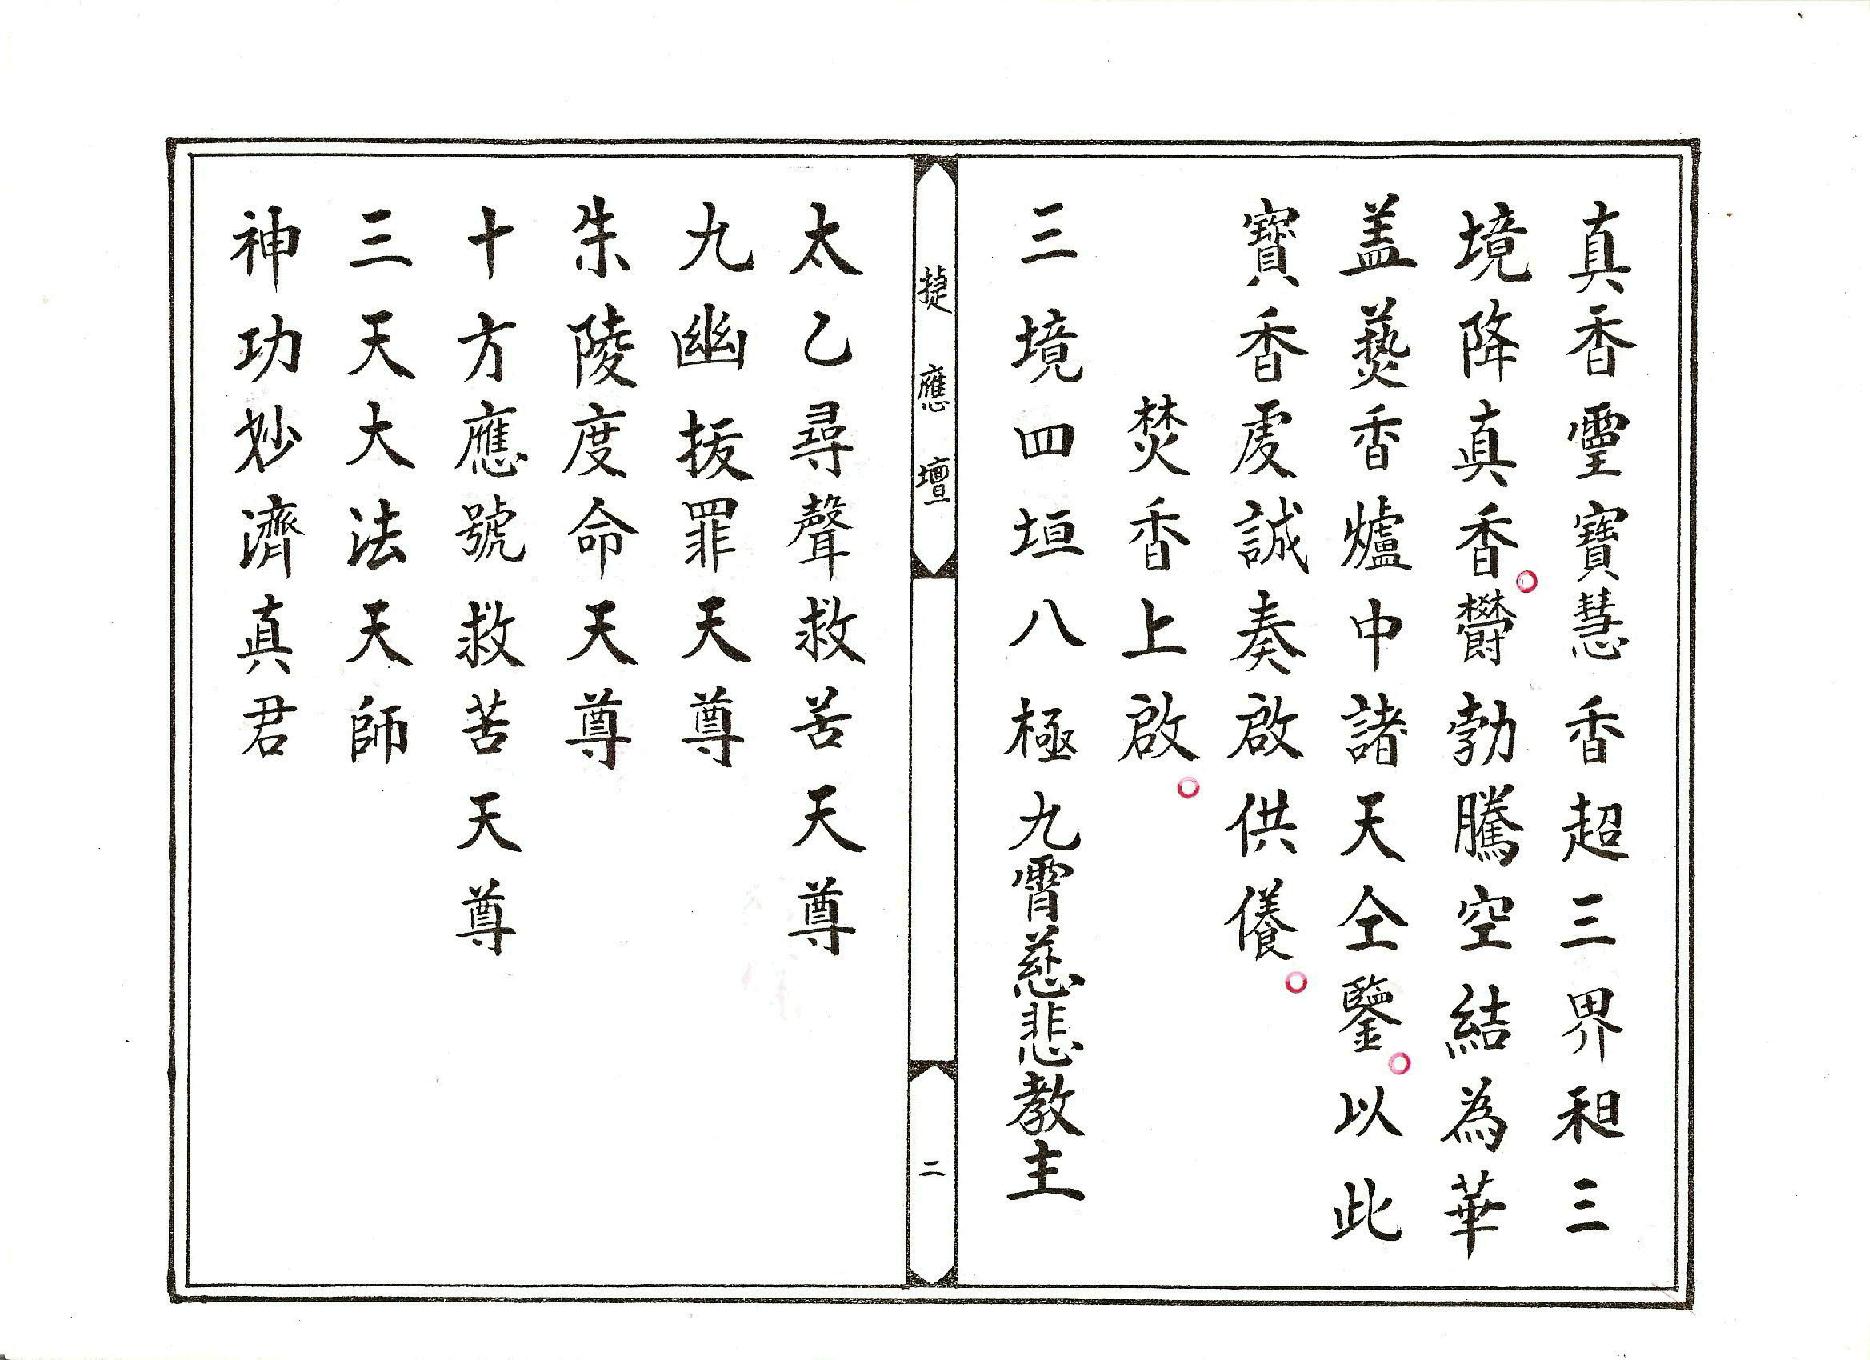 真香靈寶慧香超三界和三
境降真香欝勃騰空結為華
盖爇香爐中諸天仝鑒以此
寶香虔誠奏啟供養
焚香上啟
三境四垣八極九霄慈悲教主
捷應壇
二
太乙尋聲救苦天尊
九幽拔罪天尊
朱陵度命天尊
十方應號救苦天尊
三天大法天師
神功妙濟真君